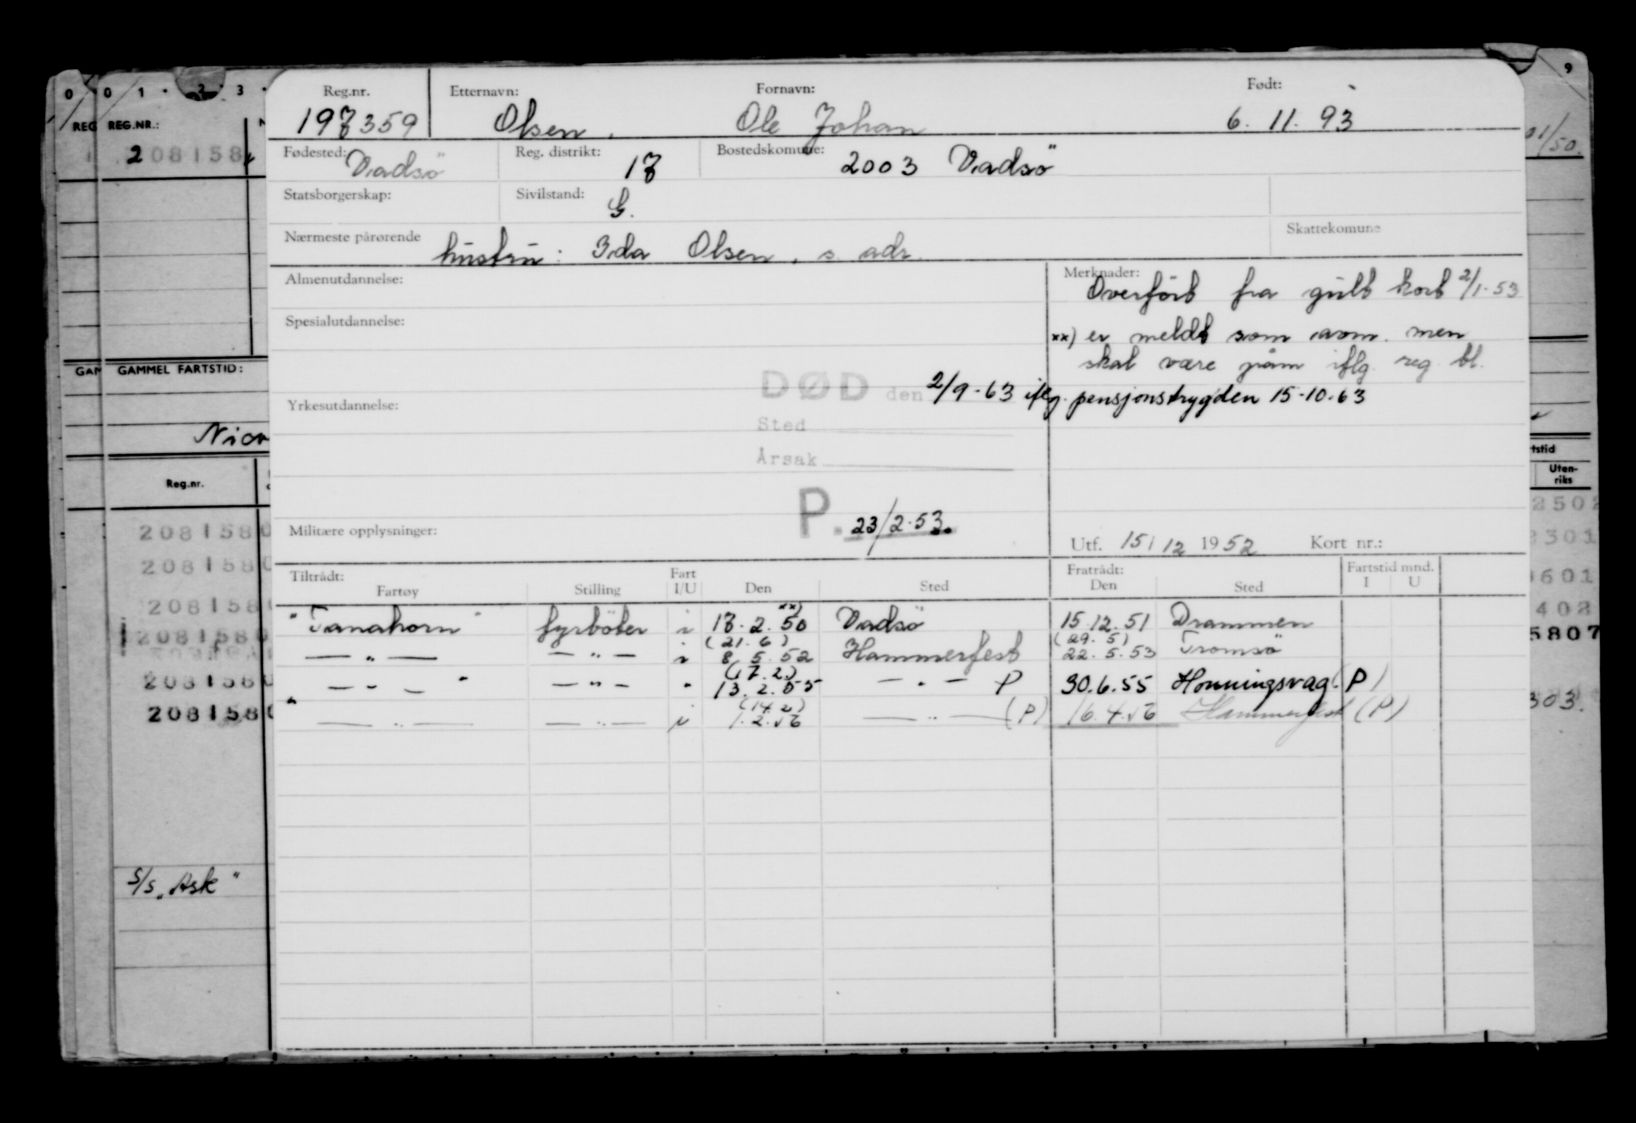 Reg.nr. Etternavn: Fornavn: Født:
197359 Olsen, Ole Johan 6. 11. 93
Fødested: Vadsö Reg. distrikt: 17 Bostedskomune: 2003 Vadsö
Statsborgerskap: Sivilstand: G.
Nærmeste pårørende hustru: Ida Olsen, s. adr. Skattekomune
Almenutdannelse: Merknader: Overfört fra gult kort 2/1-53
Spesialutdannelse: xx) er meldt som avm. men
skal være påm iflg. reg. bl.
DØD den 2/9-63 iflg. pensjonstrygden 15-10-63
Yrkesutdannelse:
Sted
Årsak
P. 23/2-53.
Militære opplysninger: Utf. 15/12 1952 Kort nr.:
Tiltrådt: Fart Fratrådt: Fartstid mnd.
Fartøy Stilling I/U Den Sted Den Sted I U
"Tanahorn" fyrböter i 17.2.50 xx) Vadsö 15.12.51 Drammen
(21.6) (29.5)
— " — — " — i 8.5.52 Hammerfest 22.5.53 Tromsö
(17.2)
— " — — " — " 13.2.55 — " — P 30.6.55 Honningsvåg (P)
(14.2)
— " — — " — i 1.2.56 — " — (P) 16.4.56 Hammerfest (P)
0 0 1 2 3
REG REG.NR.:
2 208158
GAM GAMMEL FARTSTID:
Reg.nr.
208158
208158
208158
208158
208158
208158
S/S "Ask"
9
/50.
tstid
Uten-
riks
2502
3301
601
402
5807
303.